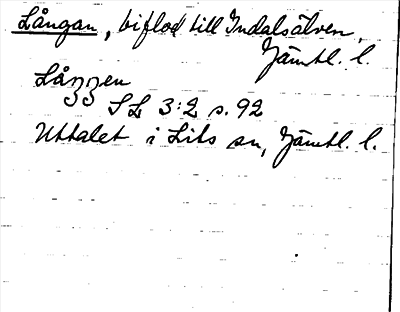 Långan, biflod till Indalsälven,
Jämtl. l.
Låʒʒen
SL 3:2 s. 92
Uttalet i Lits sn, Jämtl. l.